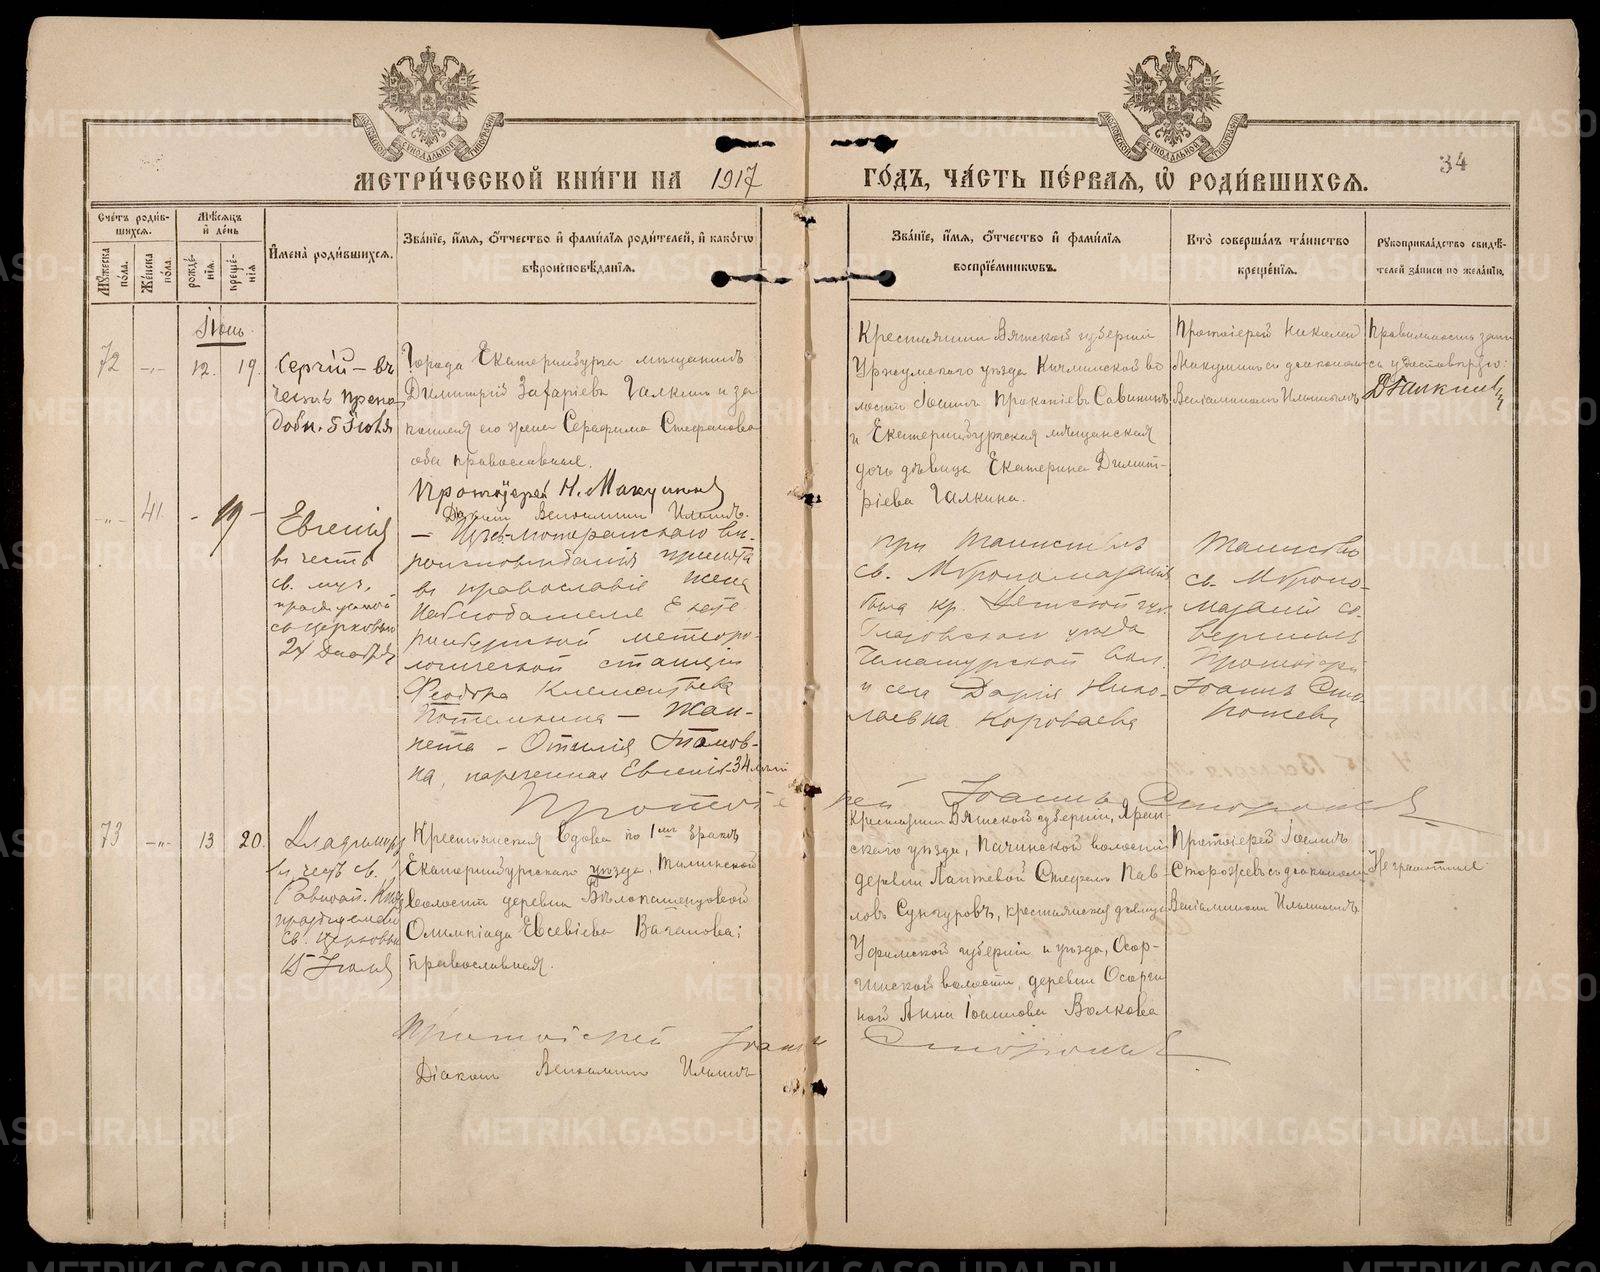 МЕТРИ́ЧЕСКОЙ КНИ́ГИ НА 1917 ГО́ДЪ, ЧА́СТЬ ПЕ́РВАѦ, Ѡ҆ РОДИ́ВШИХСѦ.
34
Сче́тъ роди́в-
шихсѧ.
Мꙋ́жеска
по́ла.
Же́нска
по́ла.
Мѣ́сѧцъ
и҆ де́нь
рожде́-
нїѧ.
креще́-
нїѧ
И҆мена̀ роди́вшихсѧ.
Зва́нїе, и҆́мѧ, ѻ҆́тчество и҆ фами́лїѧ роди́телей, и҆ како́гѡ
вѣроисповѣ́данїѧ.
Зва́нїе, и҆́мѧ, ѻ҆́тчество и҆ фами́лїѧ
воспрїе́мникѡвъ.
Кто̀ соверша́лъ та́инство
креще́нїѧ.
Рꙋкоприкла́дство свидѣ́-
телей за́писи по жела́нїю.
Іюнь.
72
12.
19.
Сергій – въ
честь препо
добн. 5 Іюля
Города Екатеринбурга мещанинъ
Димитрій Захаріевъ Галкинъ и за
конная его жена Серафима Стефанова
оба православные.
Протоіерей Н. Макушинъ
Діаконъ Веніаминъ Ильинъ.
Крестьянинъ Вятской губерніи
Уржумскаго уѣзда Кичминской во
лости Іоаннъ Прокопіевъ Савининъ
и Екатеринбургская мѣщанская
дочь дѣвица Екатерина Димит-
ріева Галкина.
Протоіерей Николай
Макушинъ съ діакономъ
Веніаминомъ Ильинымъ
Правильность запи
си удостовѣряю:
Д Галкинъ
41.
19
Евгенія
въ честь
св. муч.
празднуемой
св. церковью
24 Декабря
– Изъ лютеранскаго вѣ-
роисповѣданія принята
въ православіе жена
наблюдателя Екате
ринбургской метеоро-
логической станціи
Феодора Климентьева
Потемкина – Жан-
нета – Отилія
на, нареченная Евгенія 34 лѣтъ
При таинствѣ
св. Мѵропомазанія
была кр. Вятской губ.
Глазовскаго уѣзда
вол.
и села Дарія Нико-
лаевна Короваева
Таинство
св. Мѵропо-
мазанія со-
вершилъ
Протоіерей
Іоаннъ Сто-
рожевъ
Протоіерей Іоаннъ Сторожевъ
73
13
20.
Владиміръ
въ честь св.
Равноап. Князя
празднуемаго
св. церковью
15 Іюля
Крестьянская вдова по 1му браку
Екатеринбургскаго уѣзда,
волости деревни Бѣлопашенцовой
Олимпіада Евсевіева Ваганова;
православная.
Крестьянинъ Вятской губерніи, Яран-
скаго уѣзда, Пачинской волости
деревни Лаптевой Стефанъ Пав-
ловъ Сунгуровъ, крестьянская дѣвица
Уфимской губерніи и уѣзда, Осор-
гинской волости, деревни Осорги
ной Анна Іоаннова Волкова
Протоіерей Іоаннъ
Сторожевъ съ діакономъ
Веніаминомъ Ильинымъ
Неграмотные
Протоіерей Іоаннъ Сторожевъ
Діаконъ Веніаминъ Ильинъ
METRIKI.GASO-URAL.RU